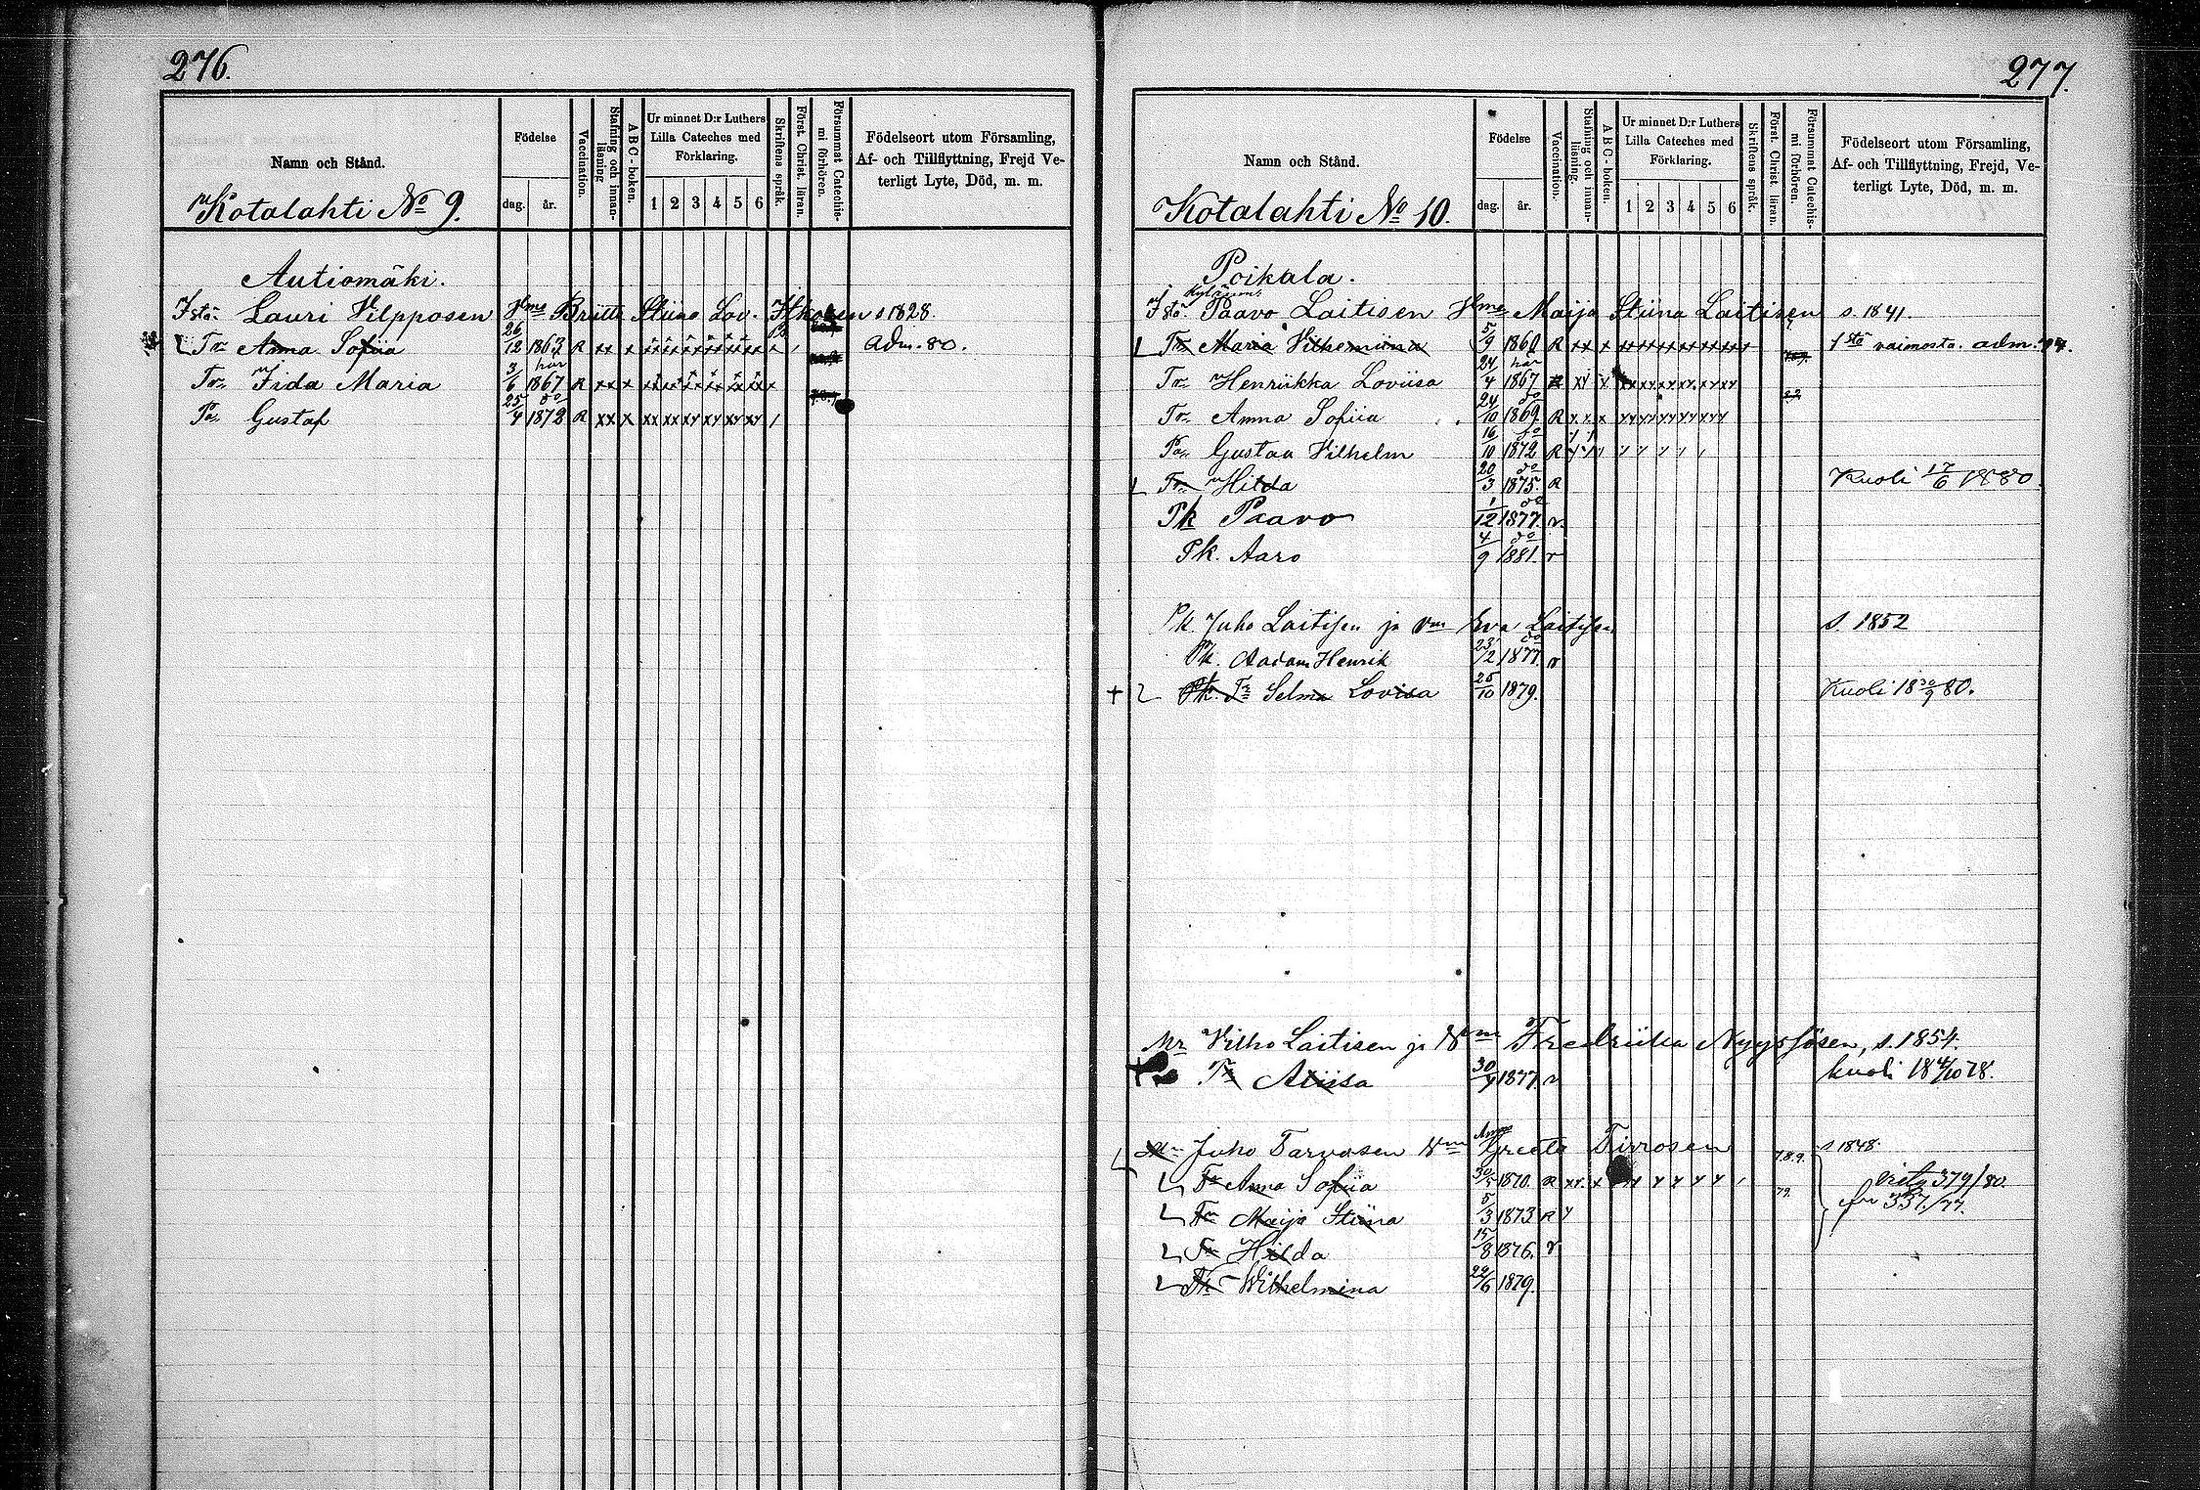 276.
Namn och Stånd.
Födelse
dag. år.
Vaccination.
Stafning och innan-läsning
ABC-boken.
Ur minnet D:r Luthers
Lilla Cateches med
Förklaring.
1 2 3 4 5 6
Skriftens språk.
Först. Christ. läran.
Försummat Catechis-
mi förhören.
Födelseort utom Församling,
Af- och Tillflyttning, Frejd Ve-
terligt Lyte, Död, m. m.
Kotalahti No 9.
Autiomäki.
Istn Lauri Vilpposen Hme Briitta Stiina Lov. s 1828.
Tr Anna Sofiia 26/12 1863 R xx x adm. 80.
Tr Fida Maria 3/6 1867 R xx x
Po Gustaf 25/4 1872 R xx x xx xx xx xx xx xx /
277.
Namn och Stånd.
Födelse
dag. år.
Vaccination.
Stafning och innan-
läsning.
ABC-boken.
Ur minnet D:r Luthers
Lilla Cateches med
Förklaring.
1 2 3 4 5 6
Skriftens språk.
Först. Christ. läran.
Försummat Catechis-
mi förhören.
Födelseort utom Församling,
Af- och Tillflyttning, Frejd, Ve-
terligt Lyte, Död, m. m.
Kotalahti No 10.
Poikala.
Istn Paavo Laitisen Hme Maija Stiina Laitisen s. 1841.
Tr Maria Vilhemiina 5/9 1860 R xx x 1stä vaimosta. adm.
Tr Henriikka Loviisa 24/4 1867
Tr Anna Sofiia 24/10 1869. R
Po Gustaa Vilhelm 16/10 1872 R
Tr Hilda 20/3 1875. R Kuoli 17/6 1880
Pk Paavo 1/12 1877. r.
Pk. Aaro 4/9 1881. r
Pk. Juho Laitisen ja vm Eva Laitisen s. 1852
Pk. Aadam Henrik 23/12 1877. r
Pk. Tr Selma Lovisa 25/10 1879. Kuoli 18 30/9 80.
Mr Vilho Laitisen ja Vm Fredriika Nyyssösen, s. 1854.
Tr Aliisa 30/4 1877. r kuoli 18 4/10 78.
Juho Tarvasen Vm Anna Greeta Tirrosen 7.8.9. s 1848.
Tr Anna Sofiia 30/5 1870. R xx. x 79. 379/80.
Tr Maija Stiina 5/3 1873 R y 337./77.
Tr Hilda 15/8 1876. r
Tr Wilhelmina 22/6 1879.